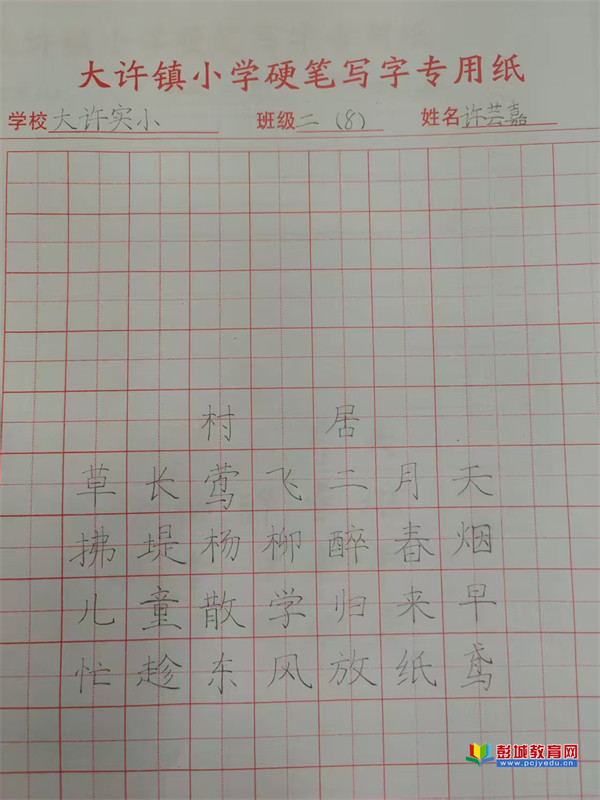 大许镇小学硬笔写字专用纸
学校 大许实小 班级 二（8） 姓名 许芸嘉
村居
草长莺飞二月天
拂堤杨柳醉春烟
儿童散学归来早
忙趁东风放纸鸢
彭城教育网
www.pcjyedu.cn